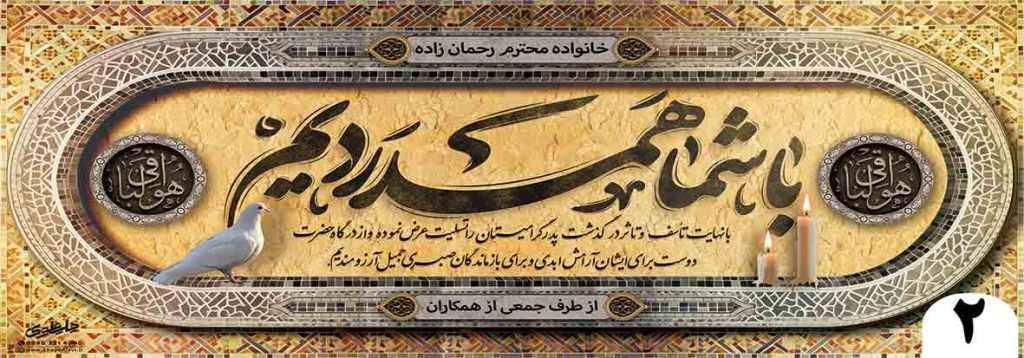 خانواده محترم رحمان زاده
با شما همدردیم
هوالباقی
هوالباقی
با نهایت تاسف و تاثر در گذشت پدر گرامیستان را تسلیت عرض نموده و از درگاه حضرت
دوست برای ایشان آرامش ابدی و برای بازماندگان صبری جمیل آرزومندیم.
از طرف جمعی از همکاران
۲